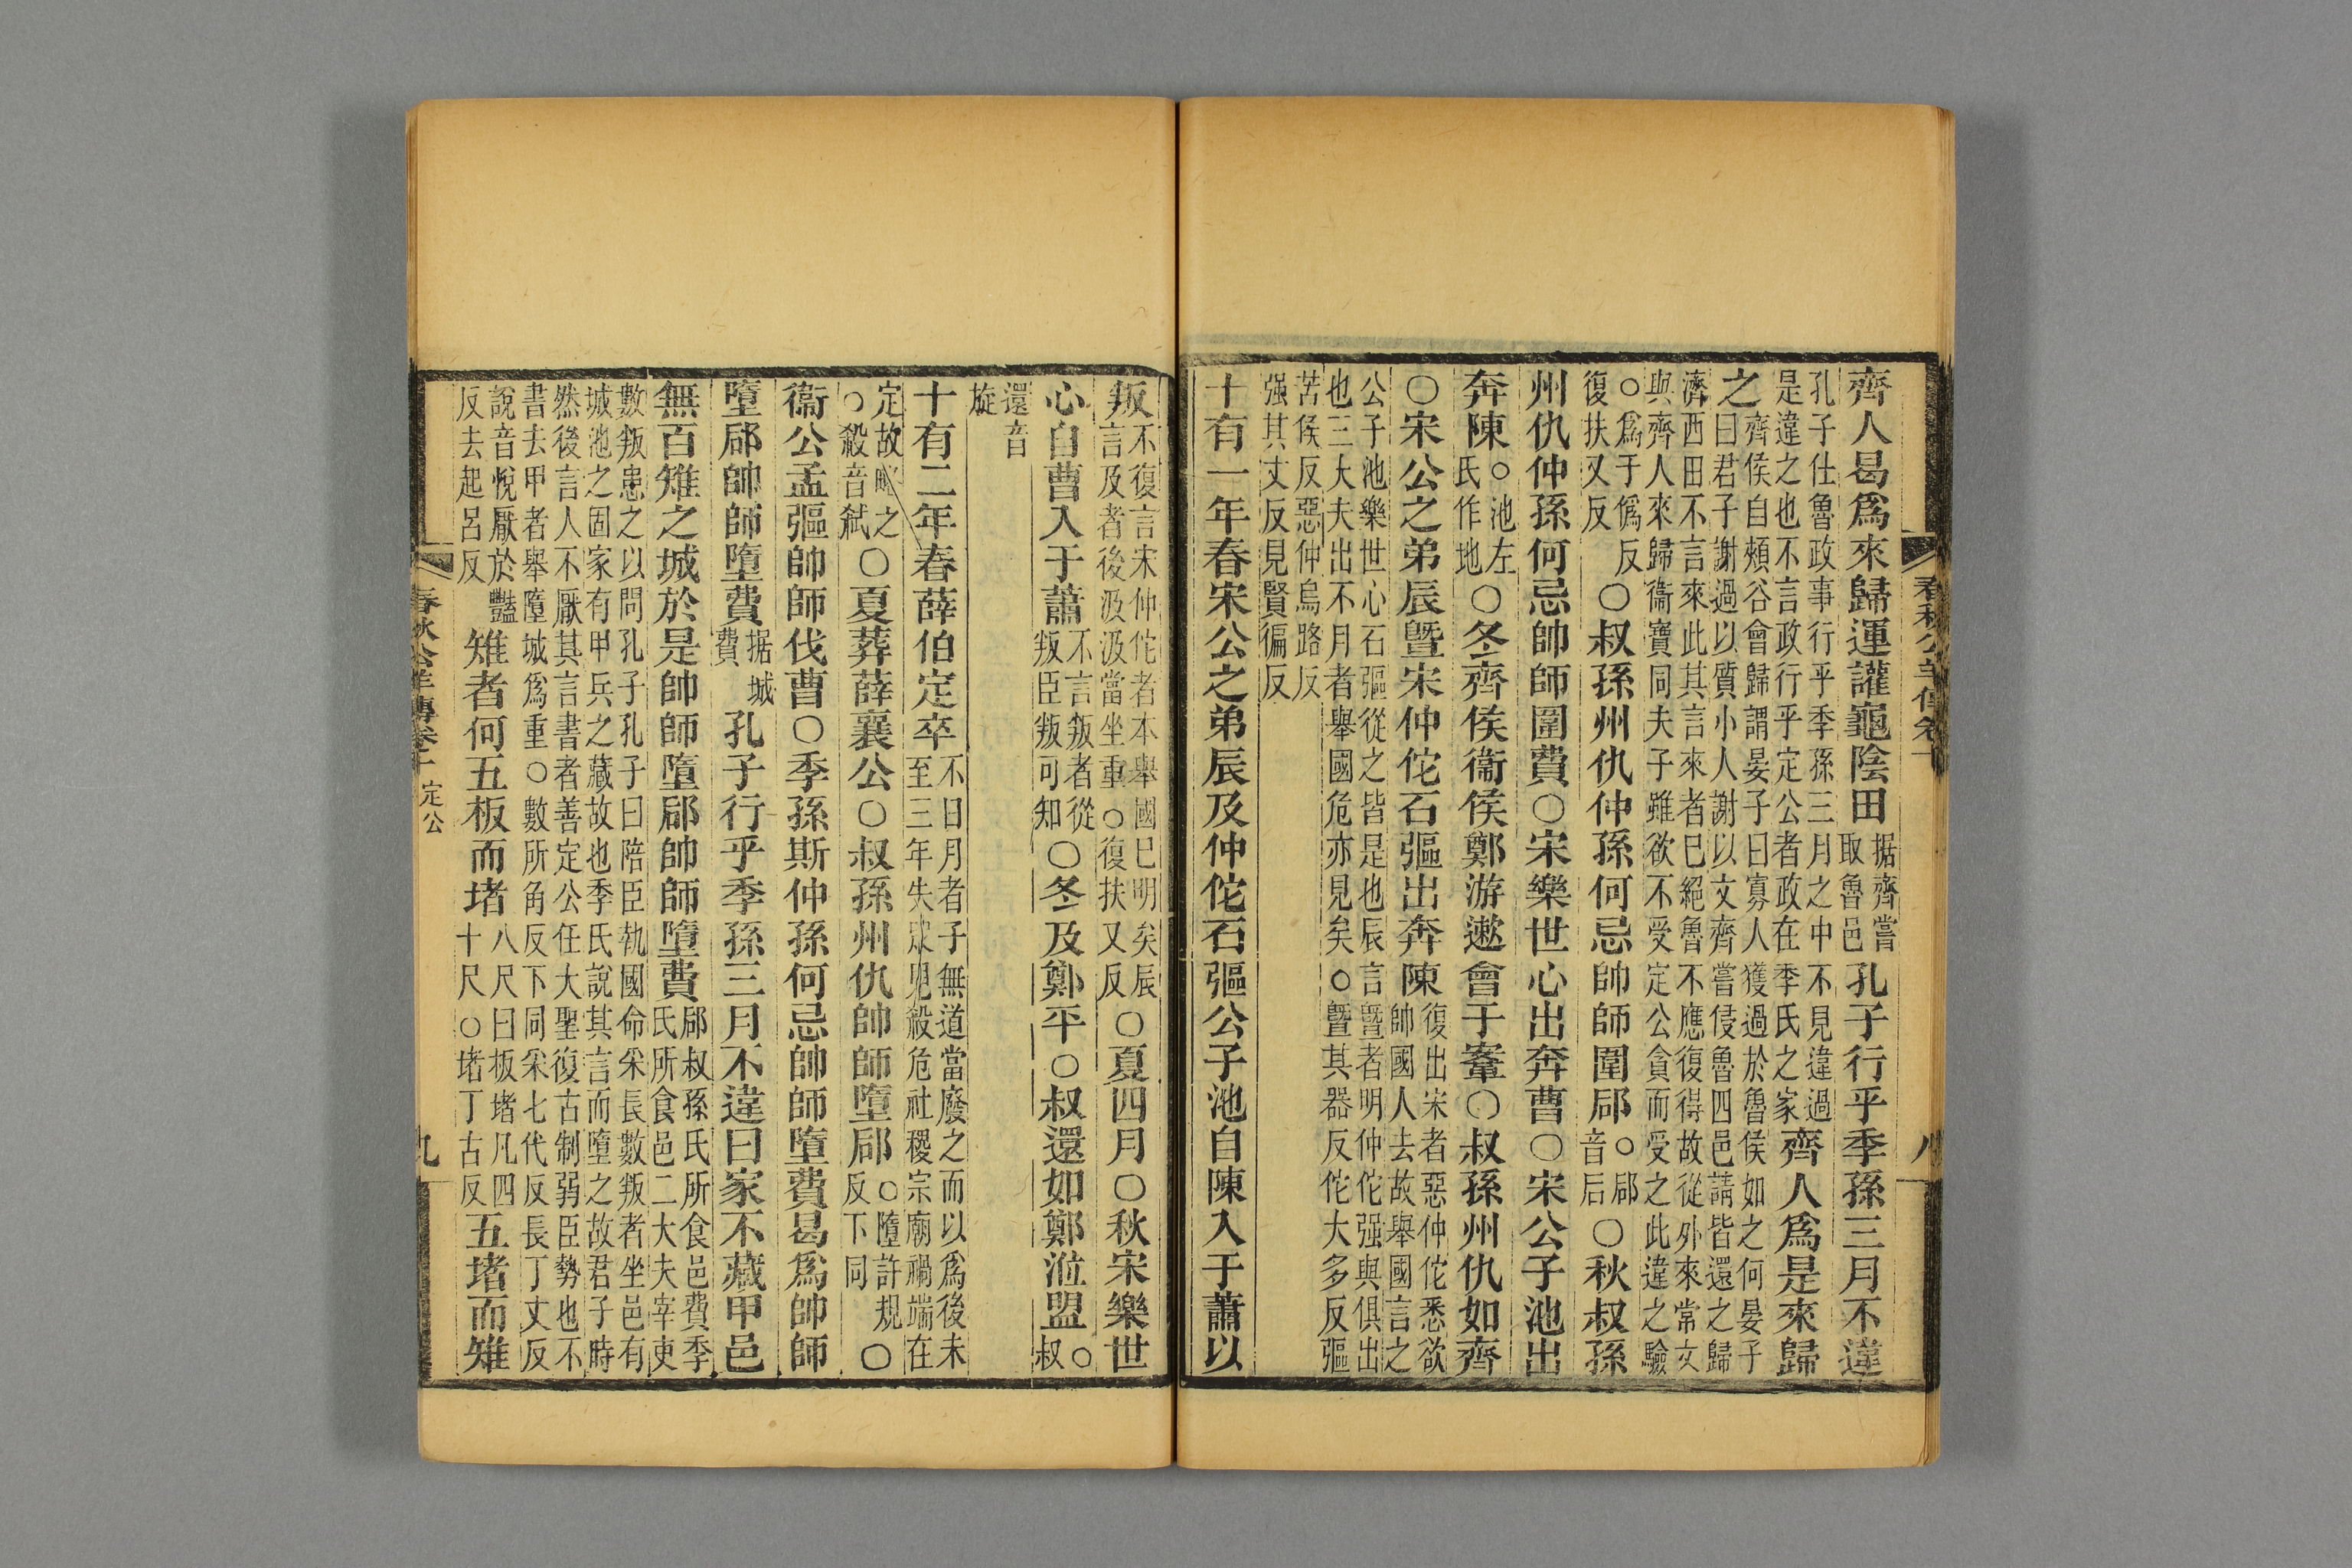 春秋公羊傳卷十
八
齊人曷爲來歸運讙龜陰田据齊嘗取魯邑孔子行乎季孫三月不違
孔子仕魯政事行乎季孫三月之中不見違過是違之也不言政行乎定公者政在季氏之家齊人爲是來歸
之齊侯自頰谷會歸謂晏子曰寡人獲過於魯侯如之何晏子曰君子謝過以質小人謝以文齊嘗侵魯四邑請皆還之歸
濟西田不言來此其言來者巳絕魯不應復得故從外來常文與齊人來歸衞寶同夫子雖欲不受定公貪而受之此違之驗
○爲于僞反復扶又反○叔孫州仇仲孫何忌帥師圍郈○郈音后○秋叔孫
州仇仲孫何忌帥師圍費○宋樂世心出奔曹○宋公子池出
奔陳○池左氏作地○冬齊侯衞侯鄭游遬會于鞌○叔孫州仇如齊
○宋公之弟辰暨宋仲佗石彄出奔陳復出宋者惡仲佗悉欲帥國人去故舉國言之
公子池樂世心石彄從之皆是也辰言暨者明仲佗强與俱出也三大夫出不月者舉國危亦見矣○暨其器反佗大多反彄
苦侯反惡仲烏路反强其丈反見賢徧反
十有一年春宋公之弟辰及仲佗石彄公子池自陳入于蕭以
叛不復言宋仲佗者本舉國巳明矣辰言及者後汲汲當坐重○復扶又反○夏四月○秋宋樂世
心自曹入于蕭不言叛者從叛臣叛可知○冬及鄭平○叔還如鄭涖盟○叔
還音旋
十有二年春薛伯定卒不日月者子無道當廢之而以爲後未至三年失眾見殺危社稷宗廟禍端在
定故略之○殺音弑○夏葬薛襄公○叔孫州仇帥師墮郈○墮許規反下同○
衞公孟彄帥師伐曹○季孫斯仲孫何忌帥師墮費曷爲帥師
墮郈帥師墮費据城費孔子行乎季孫三月不違曰家不藏甲邑
無百雉之城於是帥師墮郈帥師墮費郈叔孫氏所食邑費季氏所食邑二大夫宰吏
數叛患之以問孔子孔子曰陪臣執國命采長數叛者坐邑有城池之固家有甲兵之藏故也季氏說其言而墮之故君子時
然後言人不厭其言書者善定公任大聖復古制弱臣勢也不書去甲者舉墮城爲重○數所角反下同采七代反長丁丈反
說音悅厭於豔反去起呂反雉者何五板而堵八尺曰板堵凡四十尺○堵丁古反五堵而雉
春秋公羊傳卷十
定公
九